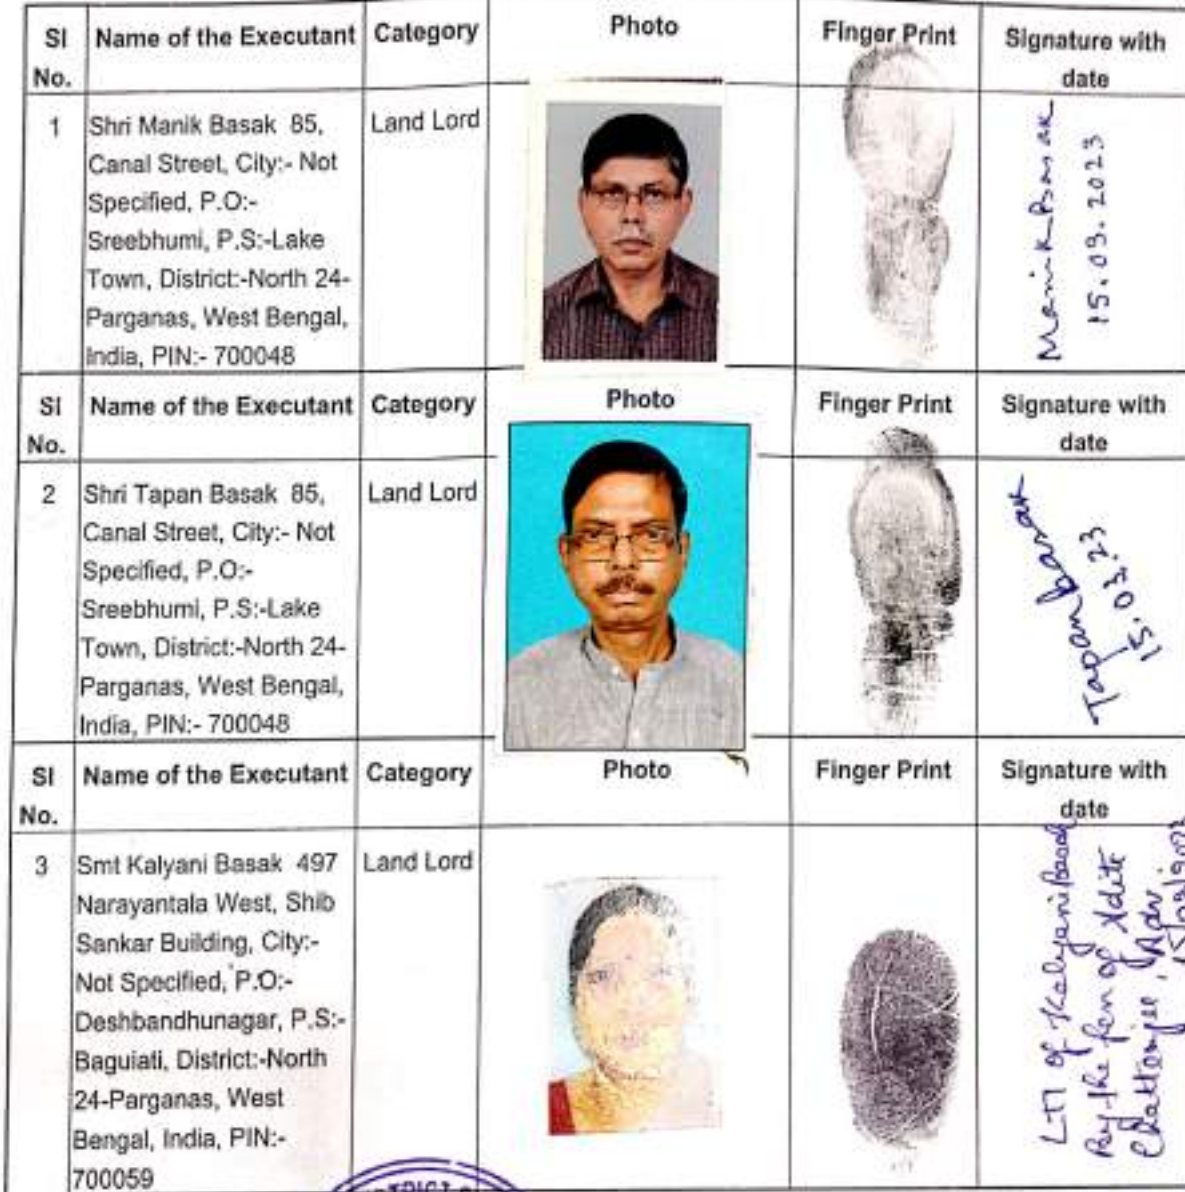 SI No. Name of the Executant Category Photo Finger Print Signature with date
1 Shri Manik Basak 85, Land Lord
Canal Street, City:- Not
Specified, P.O:-
Sreebhumi, P.S:-Lake
Town, District:-North 24-
Parganas, West Bengal,
India, PIN:- 700048
Manik Basak
15.03.2023
SI No. Name of the Executant Category Photo Finger Print Signature with date
2 Shri Tapan Basak 85, Land Lord
Canal Street, City:- Not
Specified, P.O:-
Sreebhumi, P.S:-Lake
Town, District:-North 24-
Parganas, West Bengal,
India, PIN:- 700048
Tapan basak
15.03.23
SI No. Name of the Executant Category Photo Finger Print Signature with date
3 Smt Kalyani Basak 497 Land Lord
Narayantala West, Shib
Sankar Building, City:-
Not Specified, P.O:-
Deshbandhunagar, P.S:-
Baguiati, District:-North
24-Parganas, West
Bengal, India, PIN:-
700059
LTI of Kalyani Basak
By the pen of Adite
Chatterjee, Adv.
15/03/2023